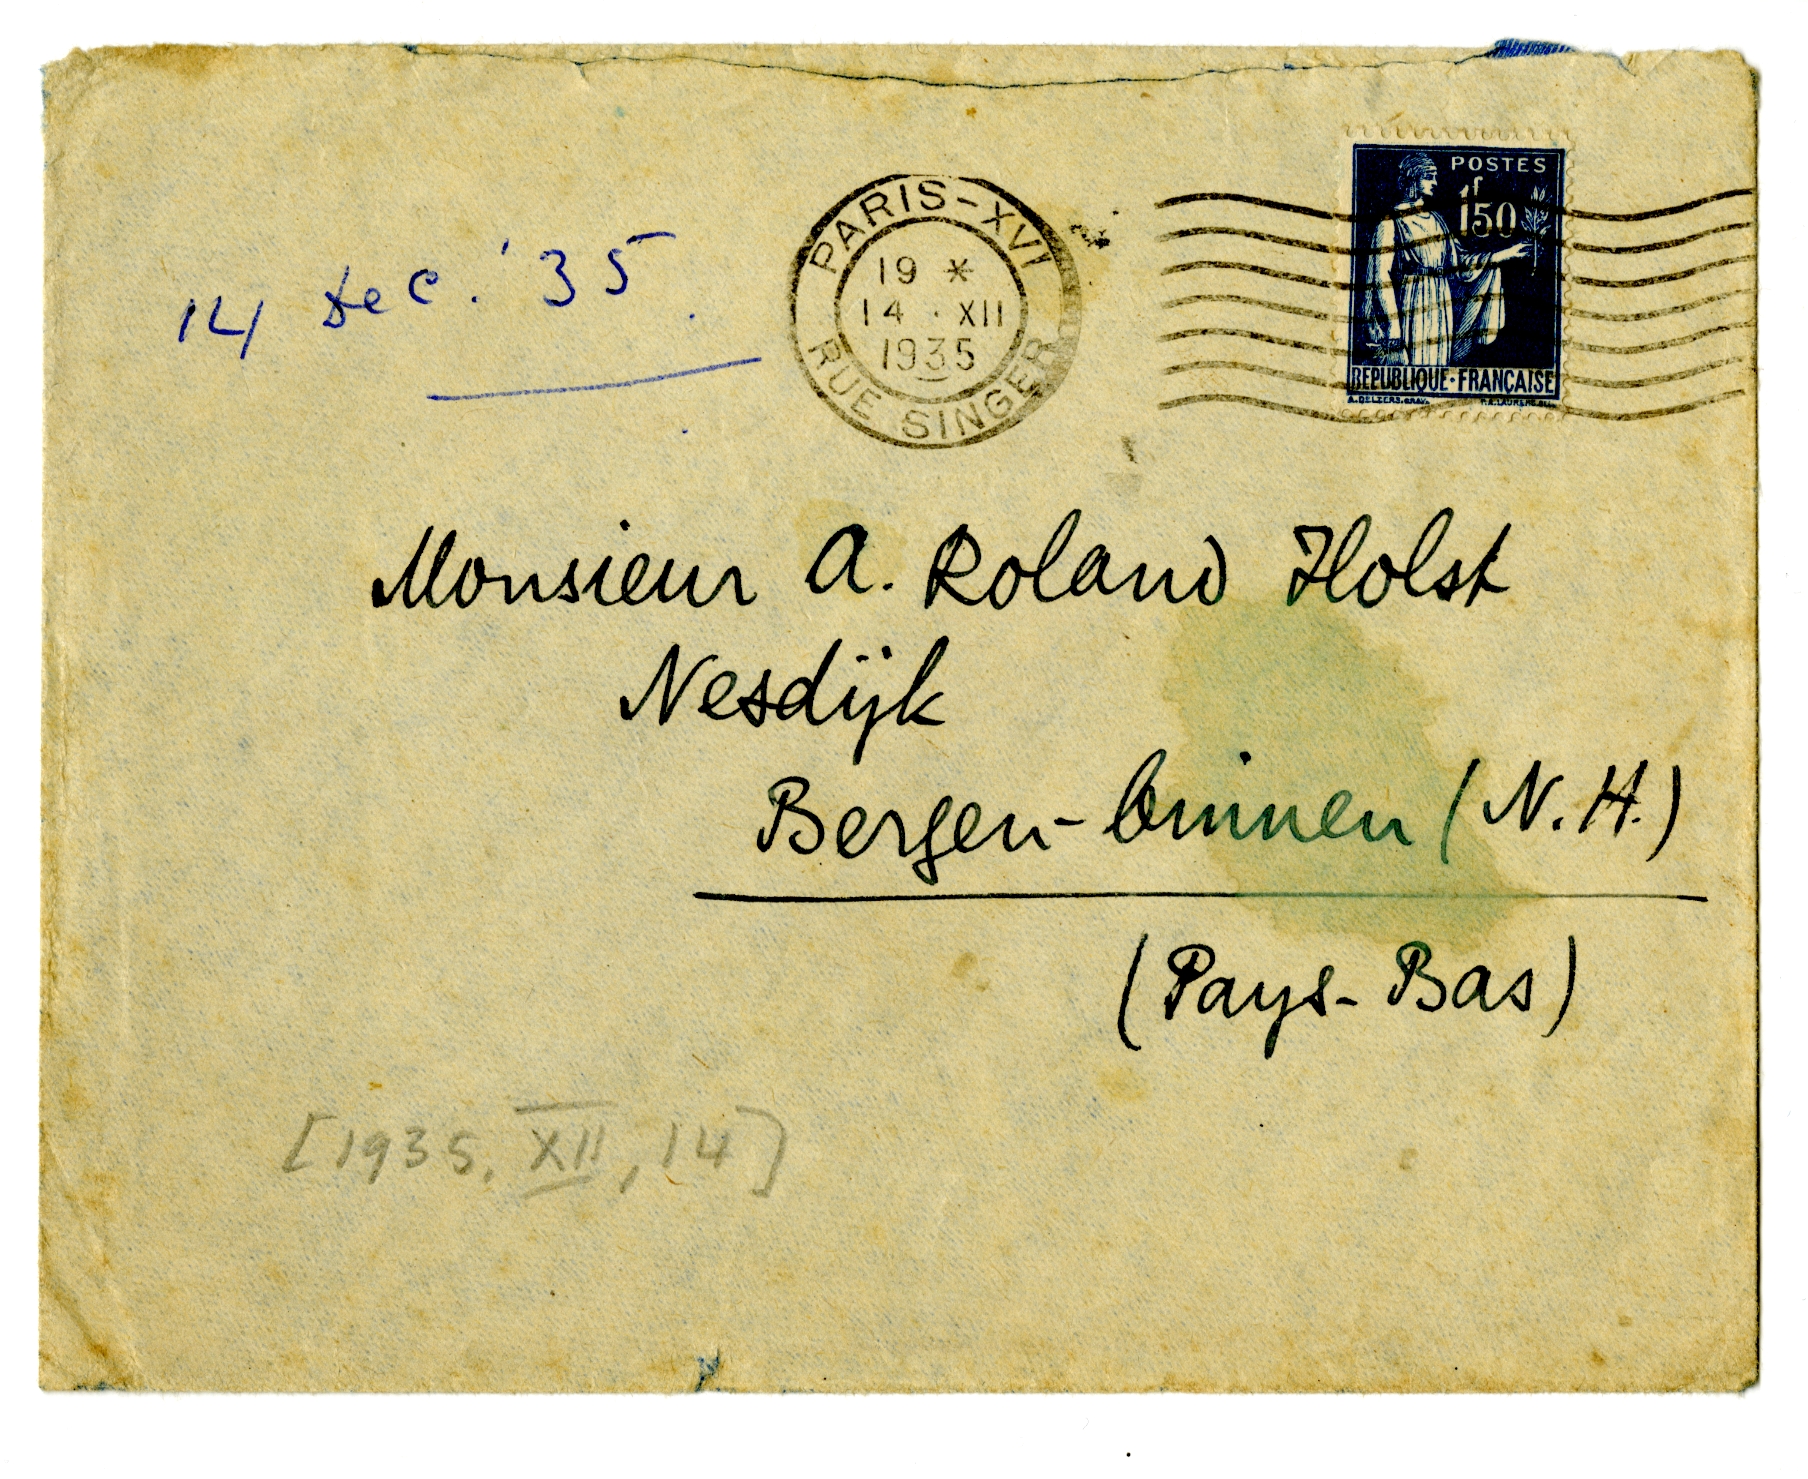 14 Dec. '35.
PARIS-XVI
19 *
14 · XII
1935
RUE SINGER
POSTES
1f50
REPUBLIQUE·FRANÇAISE
A.DELZERS.GRAV.
Monsieur A. Roland Holst
Nesdijk
Bergen-binnen (N.H.)
(Pays-Bas)
[1935, XII, 14]